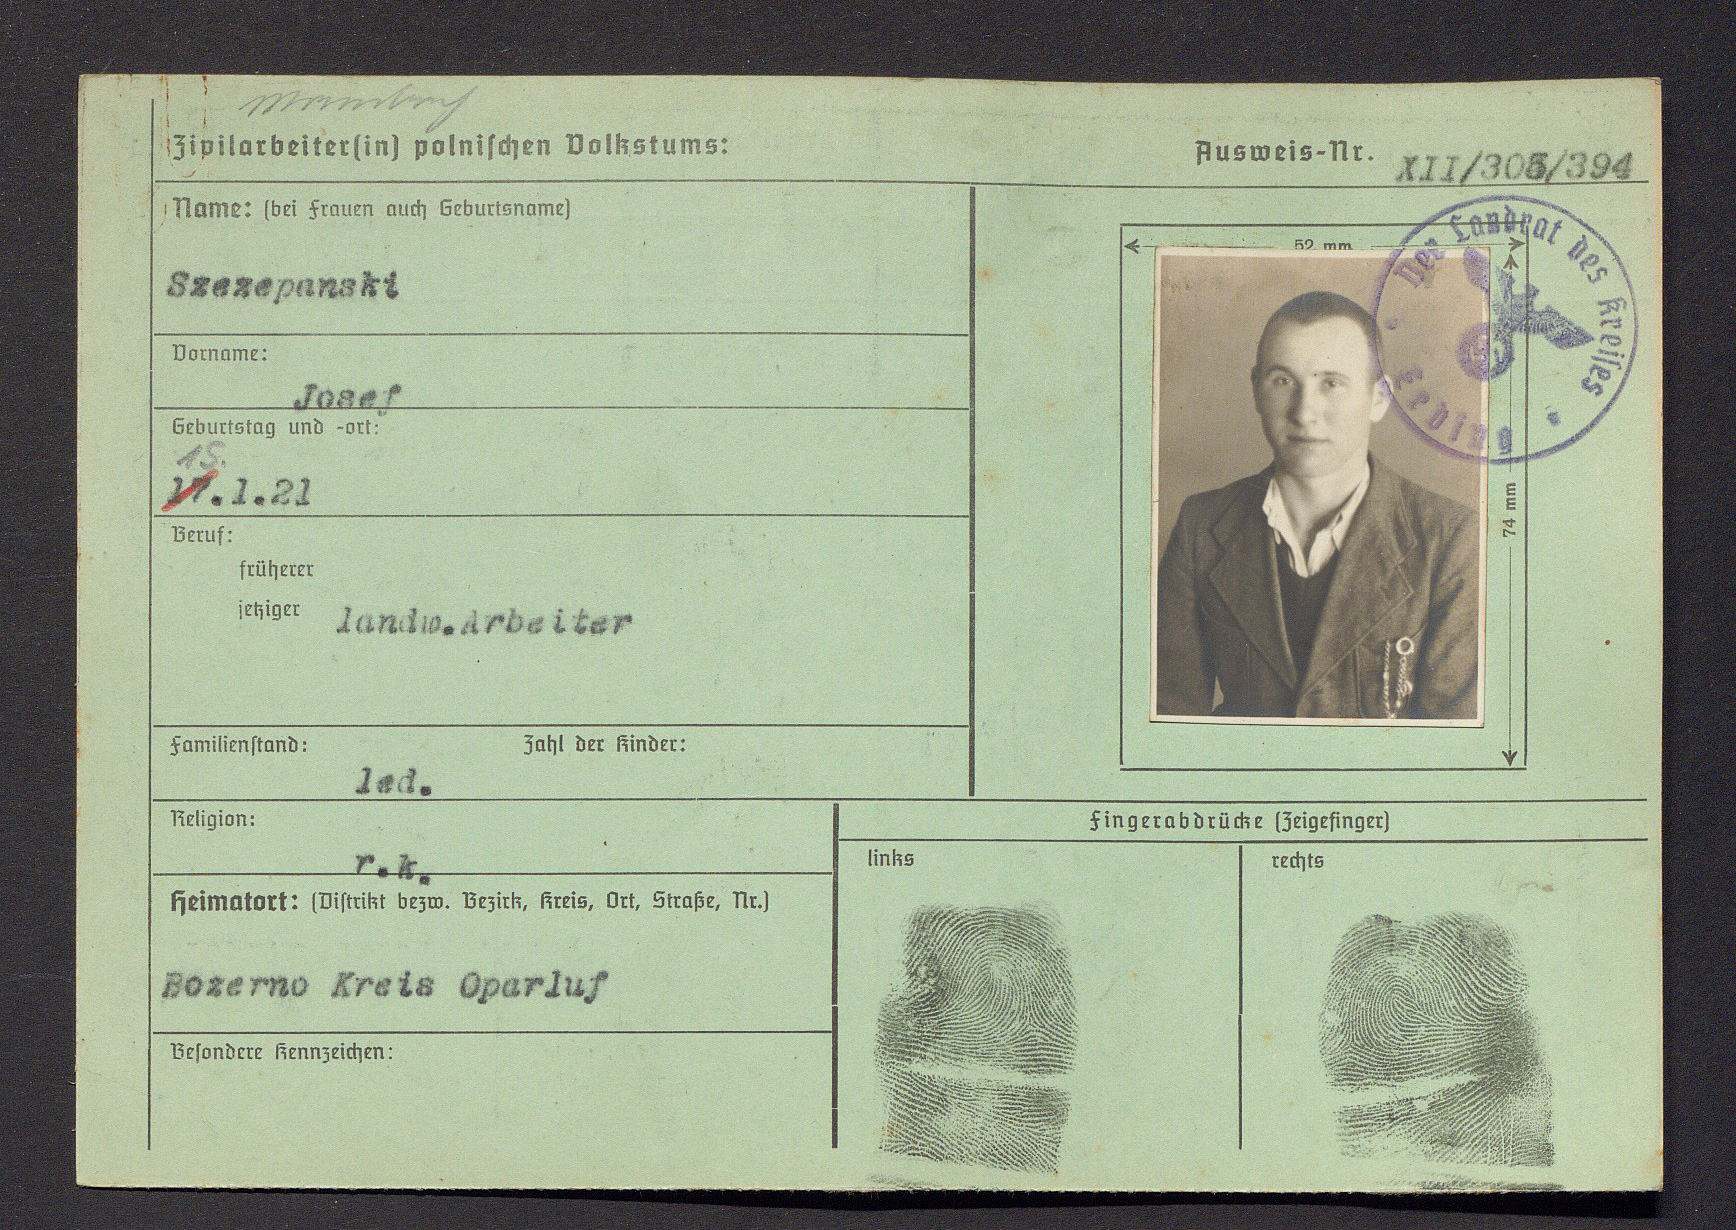 Zivilarbeiter(in) polnischen Volkstums:
Ausweis-Nr. XII/305/394
Name: (bei Frauen auch Geburtsname)
Szezepanski
Vorname:
Josef
Geburtstag und -ort:
15.
17.1.21
Beruf:
früherer
jetziger landw.Arbeiter
Familienstand: Zahl der Kinder:
led.
Religion:
r.k.
Heimatort: (Distrikt bezw. Bezirk, Kreis, Ort, Straße, Nr.)
Bozerno Kreis Oparluf
Besondere Kennzeichen:
52 mm
74 mm
Der Landrat des Kreises
Erding
Fingerabdrücke (Zeigefinger)
links
rechts